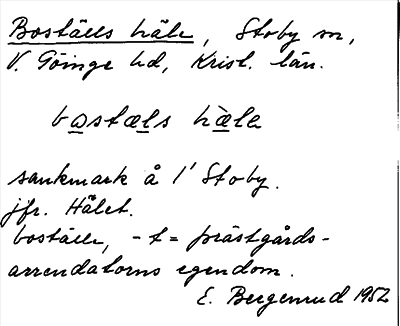 Boställs håle, Stoby sn,
V. Göinge hd, Krist. län.
bostæls hàle
sankmark å 1' Stoby.
jfr. Hålet.
boställe, -t = prästgårds-
arrendatorns egendom.
E. Bergenrud 1952